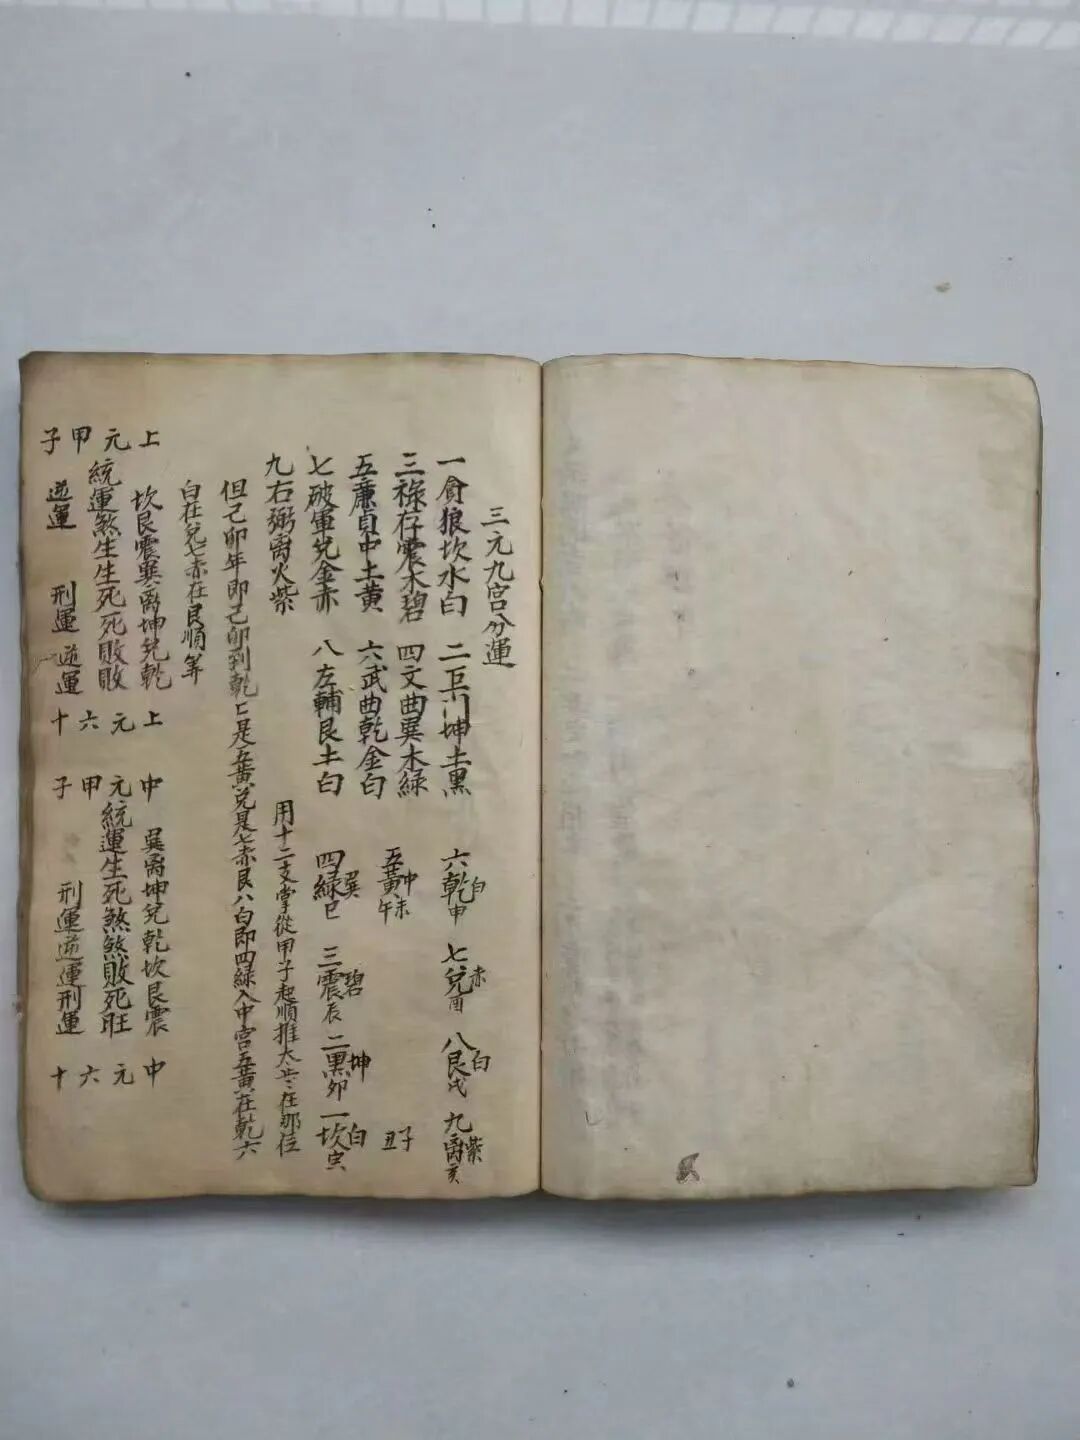 三元九宮分運
一貪狼坎水白 二巨门坤土黑
三祿存震木碧 四文曲巽木綠
五廉貞中土黃 六武曲乾金白
七破軍兌金赤 八左輔艮土白
九右弼离火紫
六乾白申 七兌赤酉 八艮白戌 九离紫亥
五黃中未午 子丑
四綠巽巳 三震碧辰 二黑坤卯 一坎白寅
用十二支掌從甲子起順推太歲在那位
但己卯年即己卯到乾匕是五黃兌是七赤艮八白即四綠入中宮五黃在乾六
白在兌七赤在艮順筭
上元甲子
坎艮震巽离坤兌乾
統運煞生生死死敗敗
逆運 刑運 逆運
上元六十
中元甲子
巽离坤兌乾坎艮震
統運生死煞煞敗死旺
刑運逆運刑運
中元六十